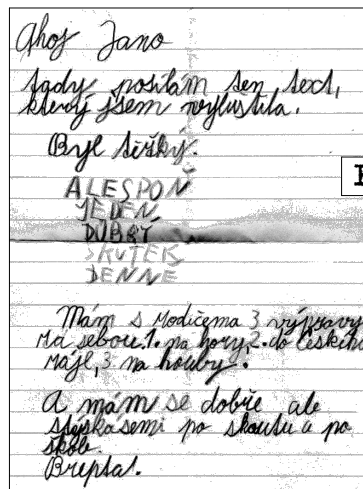 Ahoj Jano
tady posílám ten text,
který jsem vyluštila.
Byl těžký.
ALESPOŇ
JEDEN
DOBRÝ
SKUTEK
DENNE
Mám s rodičema 3 výpravy
za sebou. 1. na hory, 2. do českího
ráje, 3 na houby.
A mám se dobře ale
stýská semi po skautu a po
škole.
Brepta.